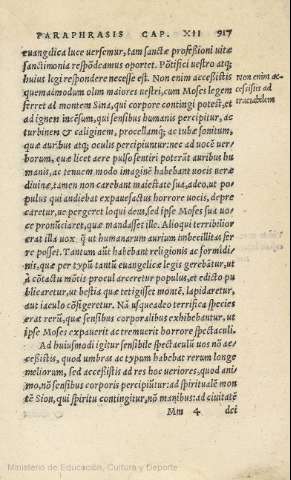 PARAPHRASIS CAP. XII 917
euangelica luce uersemur, tam sanctæ professioni uitæ
sanctimonia respōdeamus oportet. Pōtifici uestro atq;
huius legi respondere necesse est. Non enim accessistis
Non enim ac-
cessistis ad
tractabilem
quemadmodum olim maiores uestri, cum Moses legem
ferret al montem Sina, qui corpore contingi potest, et
ad ignem incēsum, qui sensibus humanis percipitur, ac
turbinē & caliginem, procellamq; ac tubæ sonitum,
quæ auribus atq; oculis percipiuntur: nec ad uocē uer-
borum, quæ licet aere pulso sentiri poterāt auribus hu
manis, ac tenuem modo imaginē habebant uocis ueræ
diuinæ, tamen non carebant maiestate sua, adeo, ut po
pulus qui audiebat expauefactus horrore uocis, depre
caretur, ne pergeret loqui deus, sed ipse Moses sua uo-
ce pronūciaret, quæ mandasset ille. Alioqui terribilior
erat illa uox. q̄ ut humanarum aurium imbecillitas fer
re posset. Tantum aūt habebant religionis ac formidi-
nis, quæ per typū tantū euangelicæ legis gerebātur, ut
à cōtactu mōtis procul arceretur populus, et edicto pu
blicaretur, ut bestia quæ tetigisset montē, lapidaretur,
aut iaculo cōfigeretur. Nā usqueadeo terrifica species
erat rerū, quæ sensibus corporalibus exhibebantur, ut
ipse Moses expauerit ac tremuerit horrore spectaculi.
Ad huiusmodi igitur sensibile spectaculū uos nō ac-
cessistis, quod umbras ac typum habebat rerum longe
meliorum, sed accessistis ad res hoc ueriores, quod ani
mo, nō sensibus corporis percipiūtur: ad spiritualē mon
tē Sion, qui spiritu contingitur, nō manibus: ad ciuitatē
Mm 4 dei
Ministerio de Educación, Cultura y Deporte